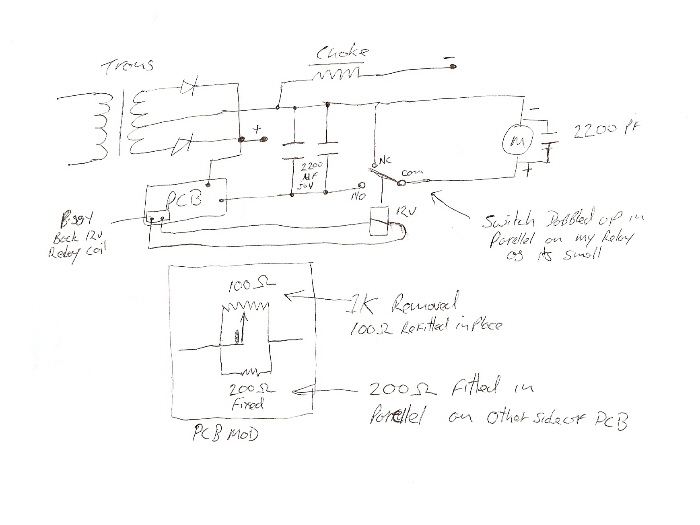 Choke
Trans
-
+
-
M
2200 PF
+
2200
MF
50V
NC
Com
NO
12V
PCB
Back 12v
Relay Coil
Switch Doubled up in
Parallel on my Relay
as its small
100Ω
1K Removed
100Ω Refitted in Place
200Ω
Fixed
200Ω Fitted in
Parallel on Other side of PCB
PCB MOD